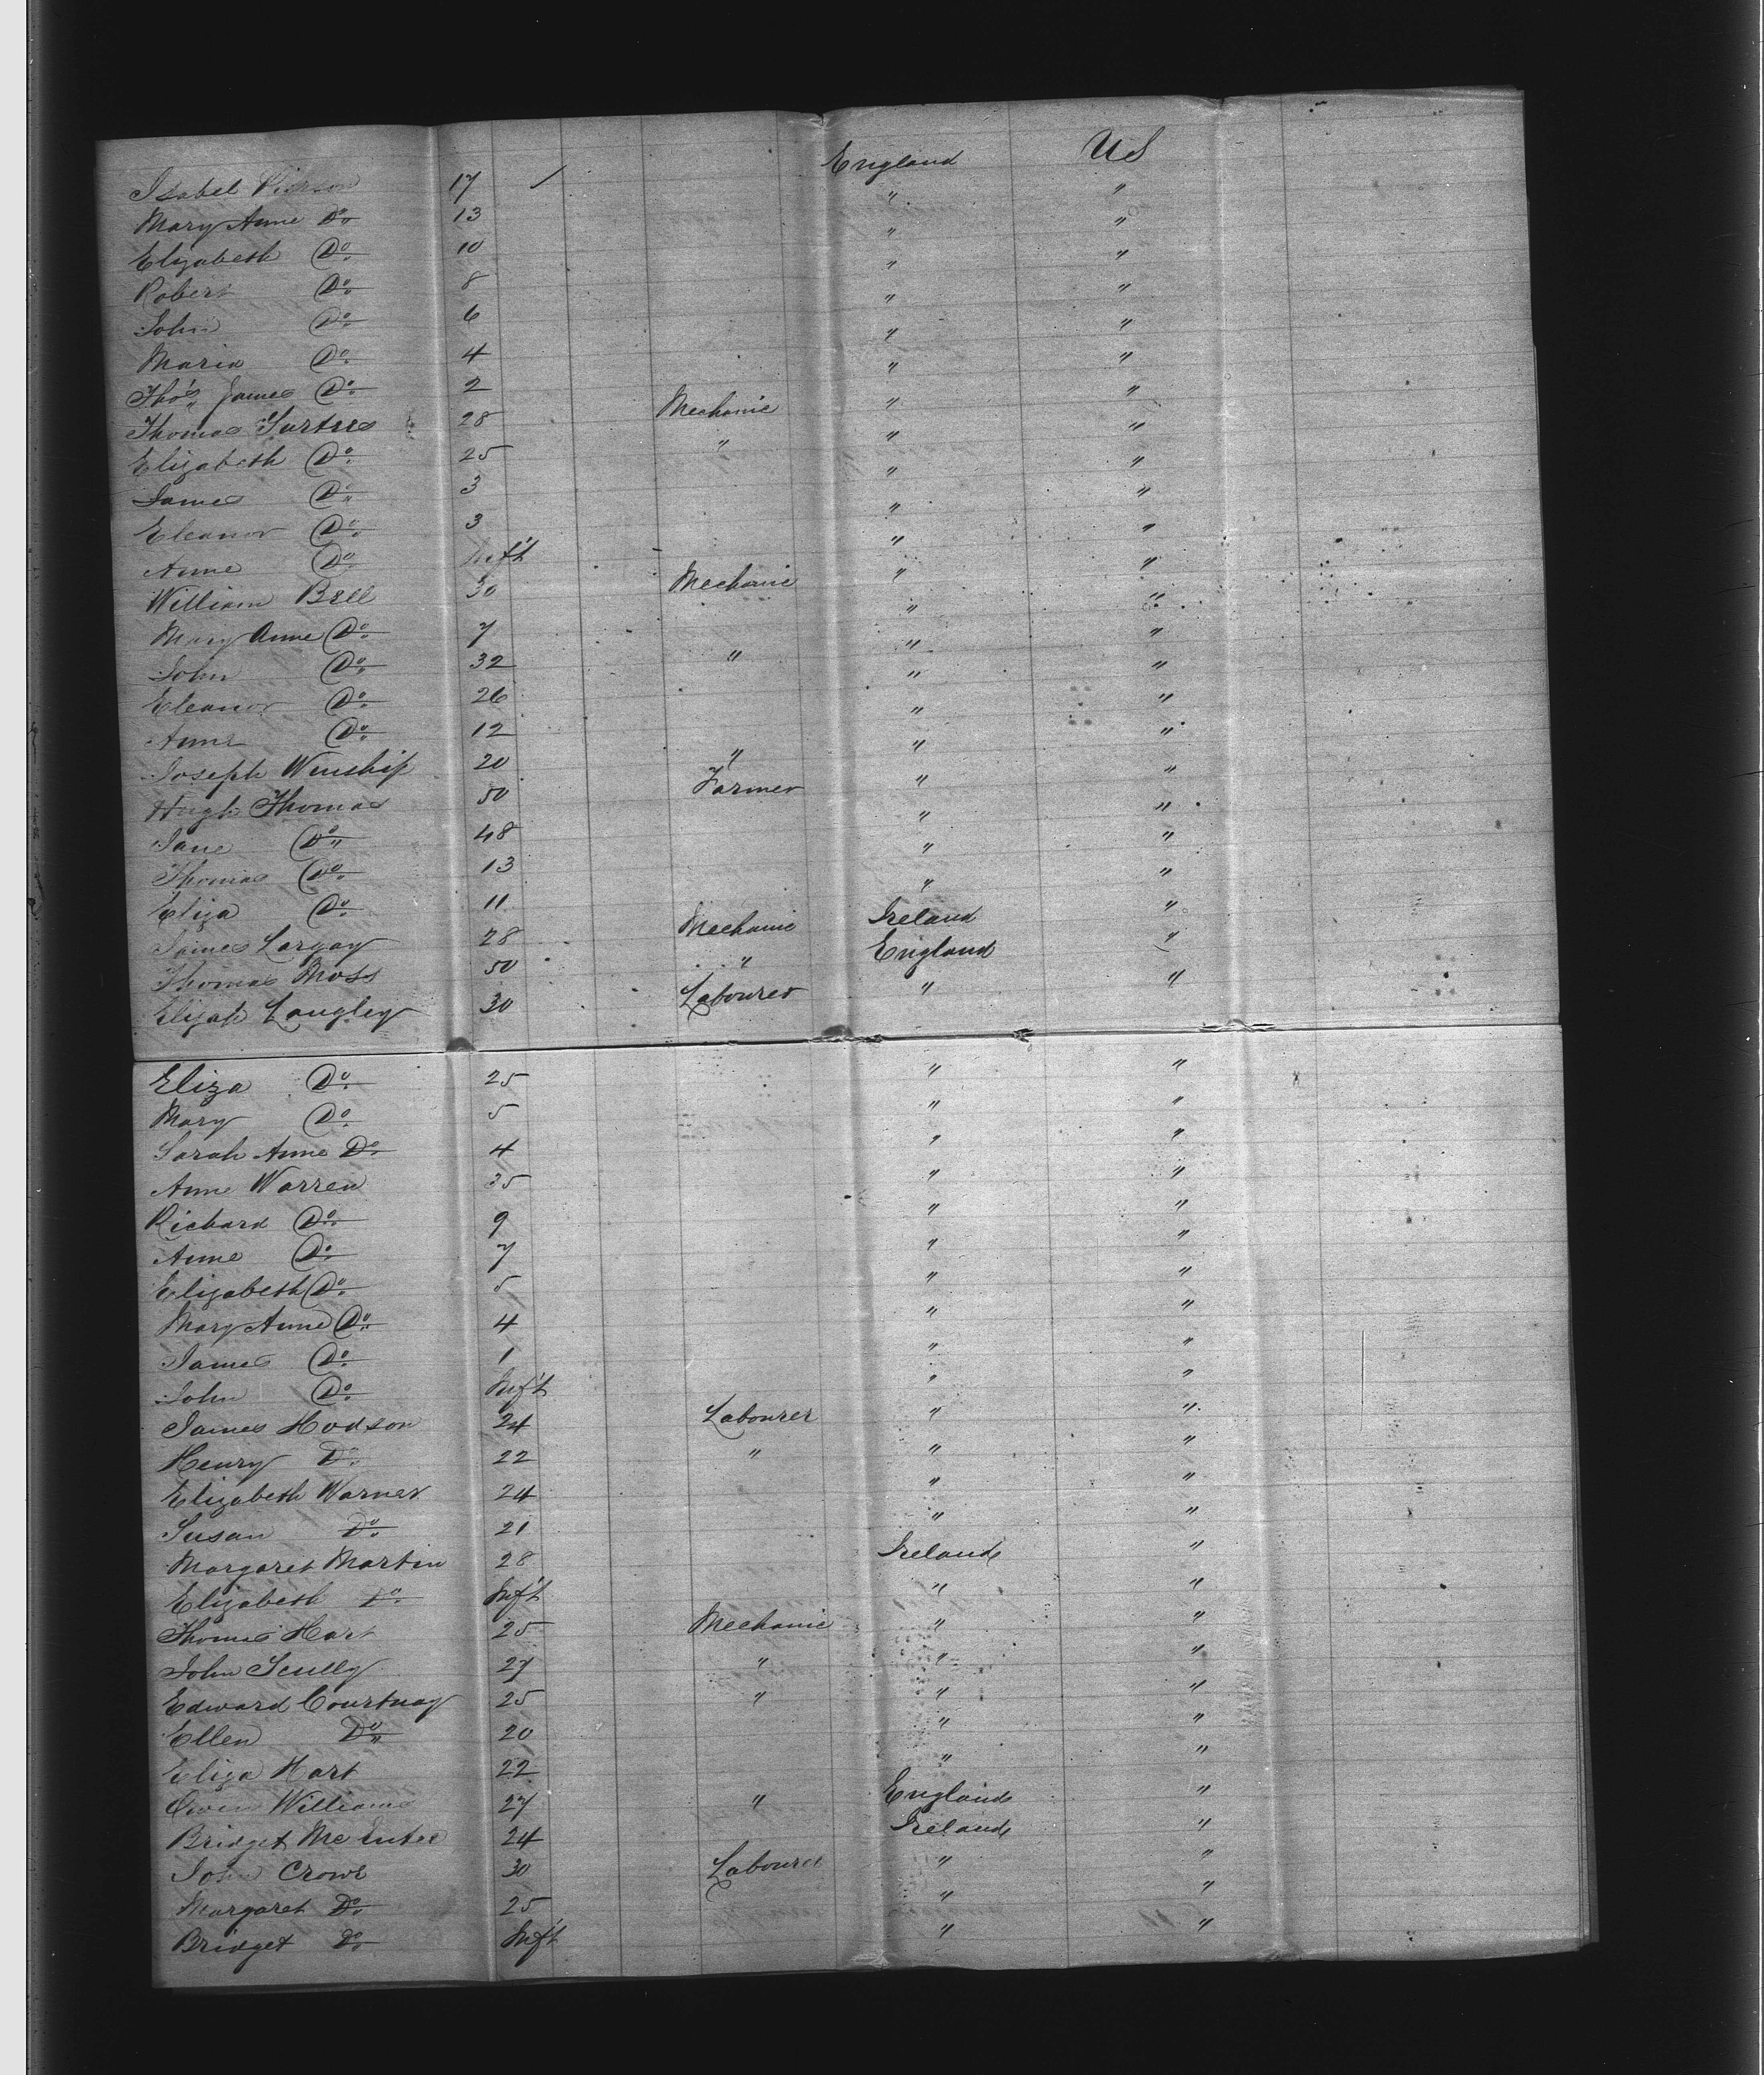 Isabel 17 England US
Mary Anne Do 13 " "
Elizabeth Do 10 " "
Robert Do 8 " "
John Do 6 " "
Maria Do 4 " "
Thos James Do 2 " "
Thomas Surtees 28 Mechanic " "
Elizabeth Do 25 " " "
James Do 3 " "
Eleanor Do 3 " "
Anne Do Inft " "
William Bell 30 Mechanic " "
Mary Anne Do 7 " "
John Do 32 " " "
Eleanor Do 26 " "
Anne Do 12 " "
Joseph Winship 20 " " "
Hugh Thomas 50 Farmer " "
Jane Do 48 " "
Thomas Do 13 " "
Eliza Do 11 " "
James Largay 28 Mechanic Ireland "
Thomas Moss 50 " England "
Elijah Langley 30 Labourer " "
Eliza Do 25 " "
Mary Do 5 " "
Sarah Anne Do 4 " "
Anne Warren 35 " "
Richard Do 9 " "
Anne Do 7 " "
Elizabeth Do 5 " "
Mary Anne Do 4 " "
James Do 1 " "
John Do Inft " "
James Hodson 24 Labourer " "
Henry Do 22 " " "
Elizabeth Warner 24 " "
Susan Do 21 " "
Margaret Martin 28 Ireland "
Elizabeth Do Inft " "
Thomas Hart 25 Mechanic " "
John Scully 27 " " "
Edward Courtnay 25 " " "
Ellen Do 20 " "
Eliza Hart 22 " "
Owen Williams 27 " England "
Bridget McEntee 24 Ireland "
John Crowe 30 Labourer " "
Margaret Do 25 " "
Bridget Do Inft " "